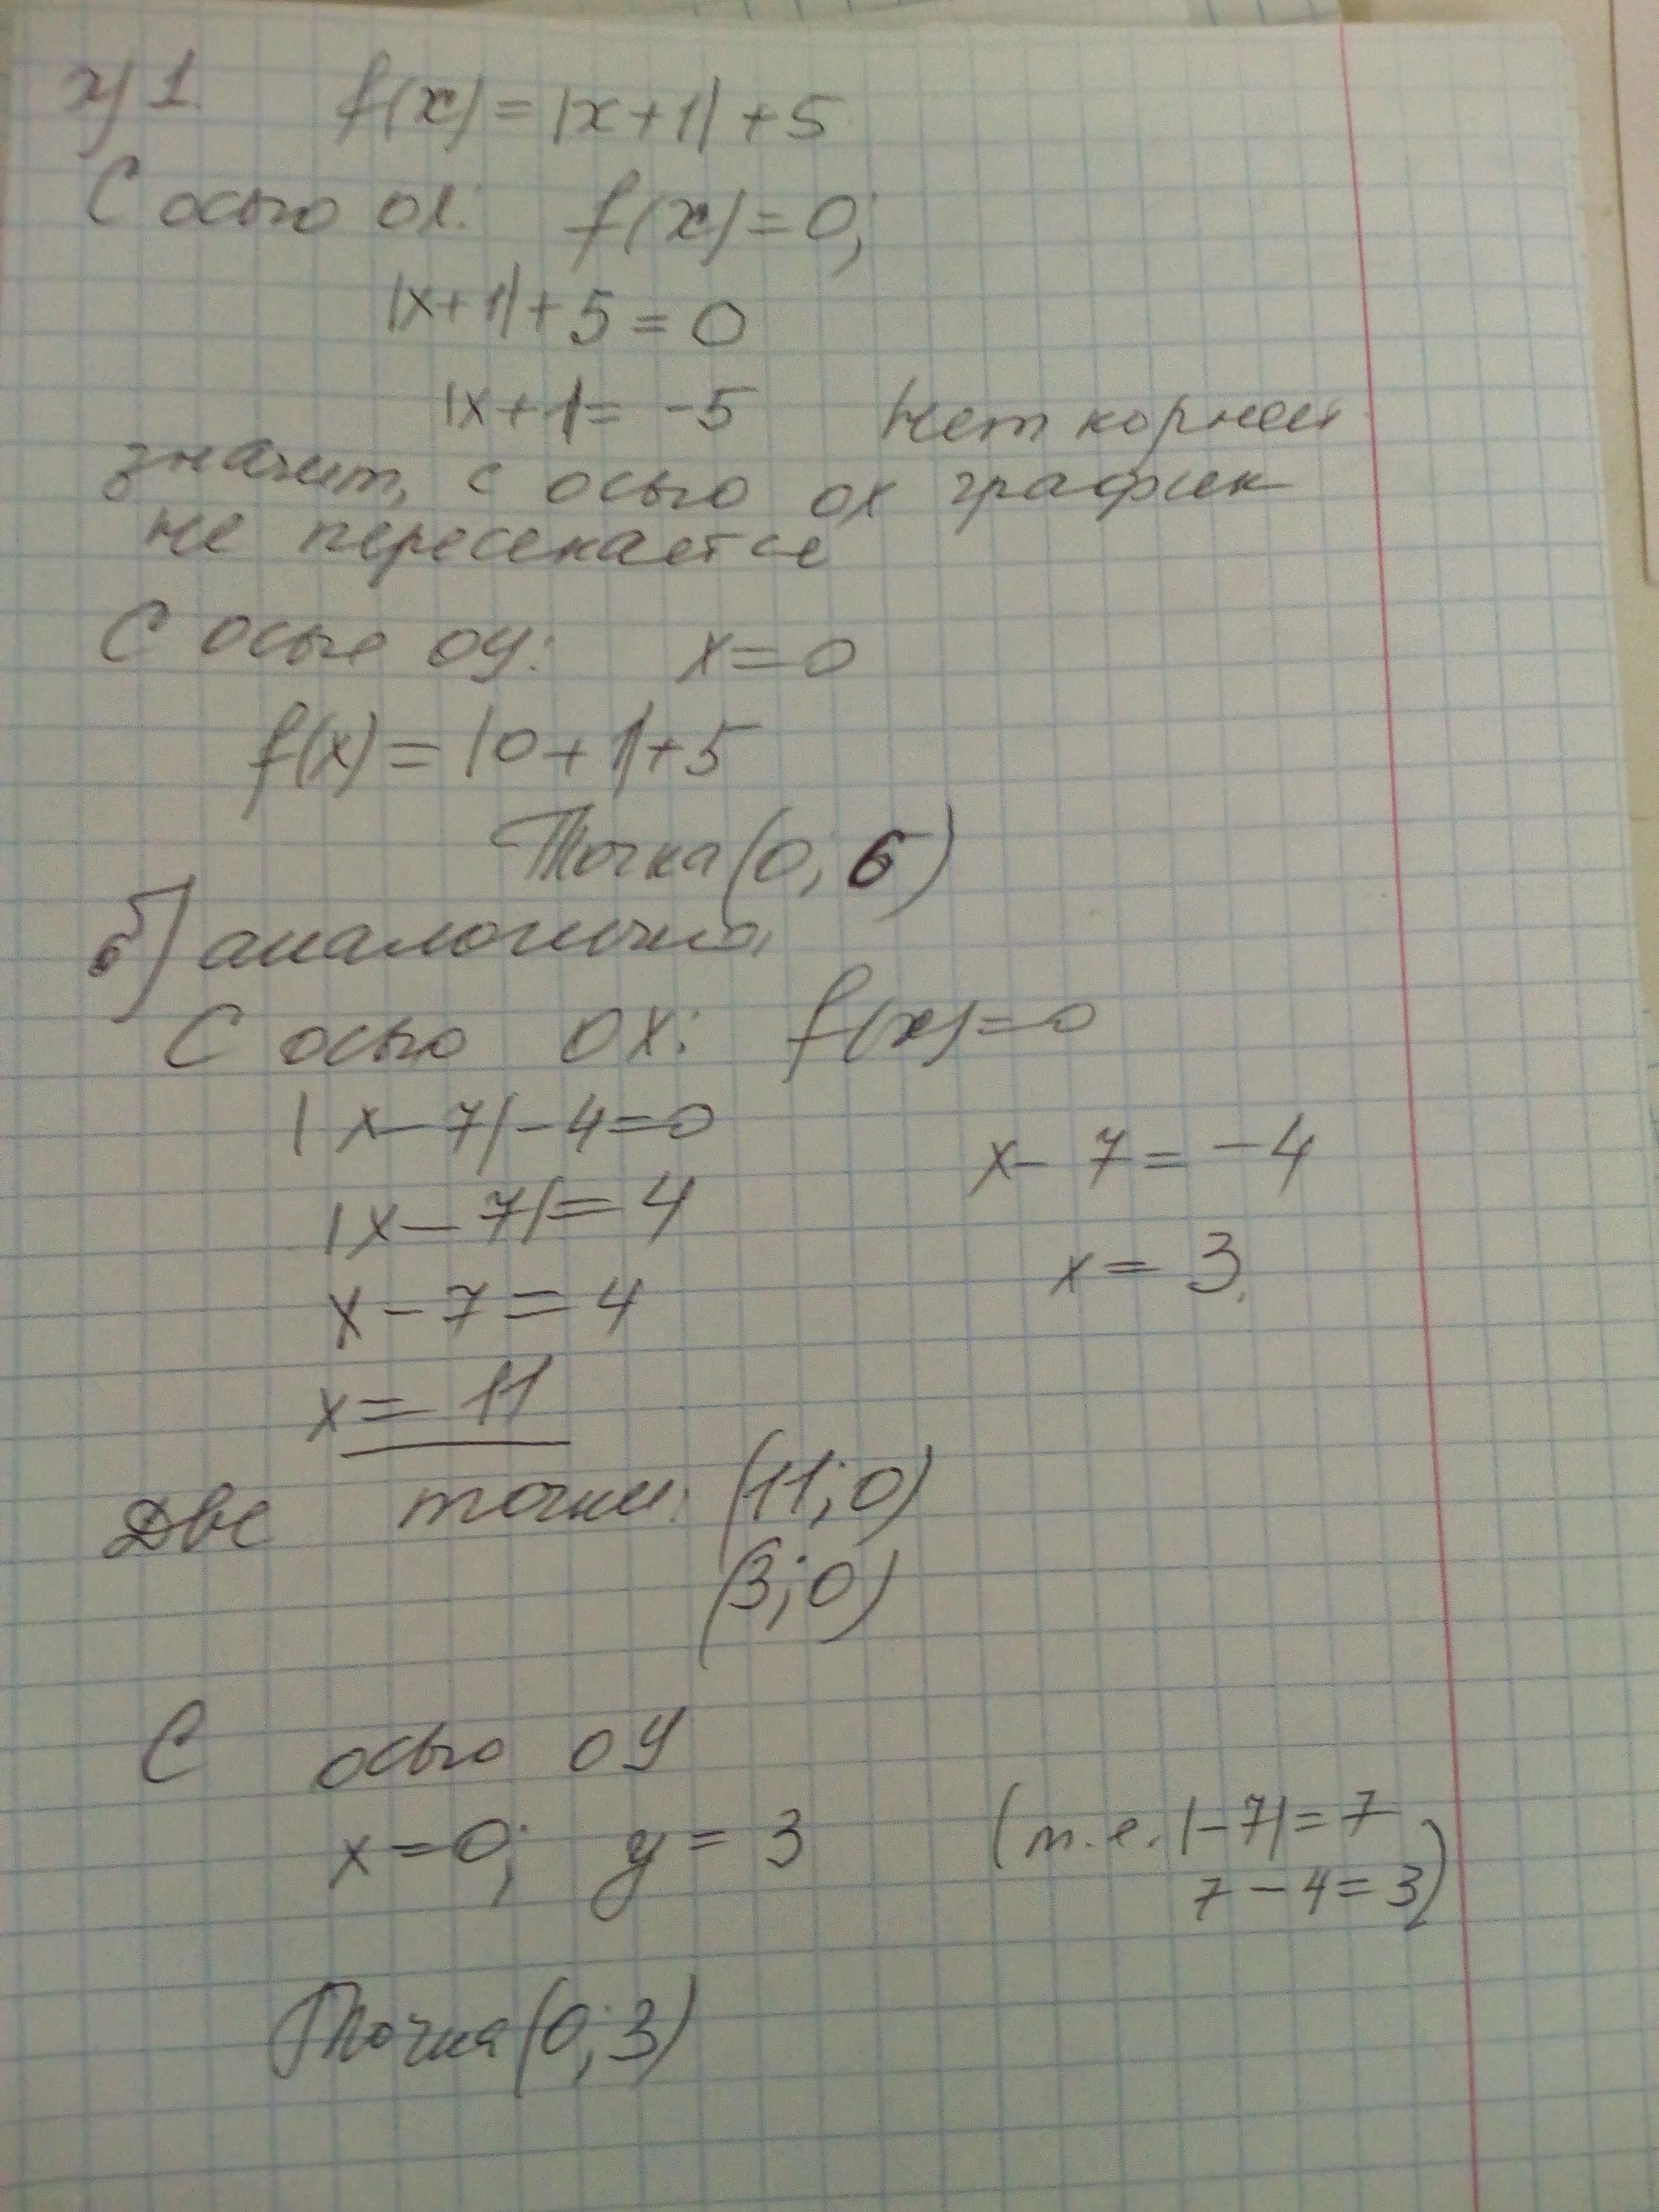 1. f(x)=|x+1|+5
С осью ох: f(x)=0;
|x+1|+5=0
|x+1|= -5 Нет корней
значит, с осью ох график
не пересекается
С осью оу: x=0
f(x)=|0+1|+5
Точка (0; 6)
б) аналогично,
С осью ОХ: f(x)=0
|x-7|-4=0
|x-7|=4
x-7=4
x=11
x-7=-4
x=3.
Две точки: (11;0)
(3;0)
С осью оу
x=0; y=3
(т.е. |-7|=7
7-4=3)
Точка (0;3)